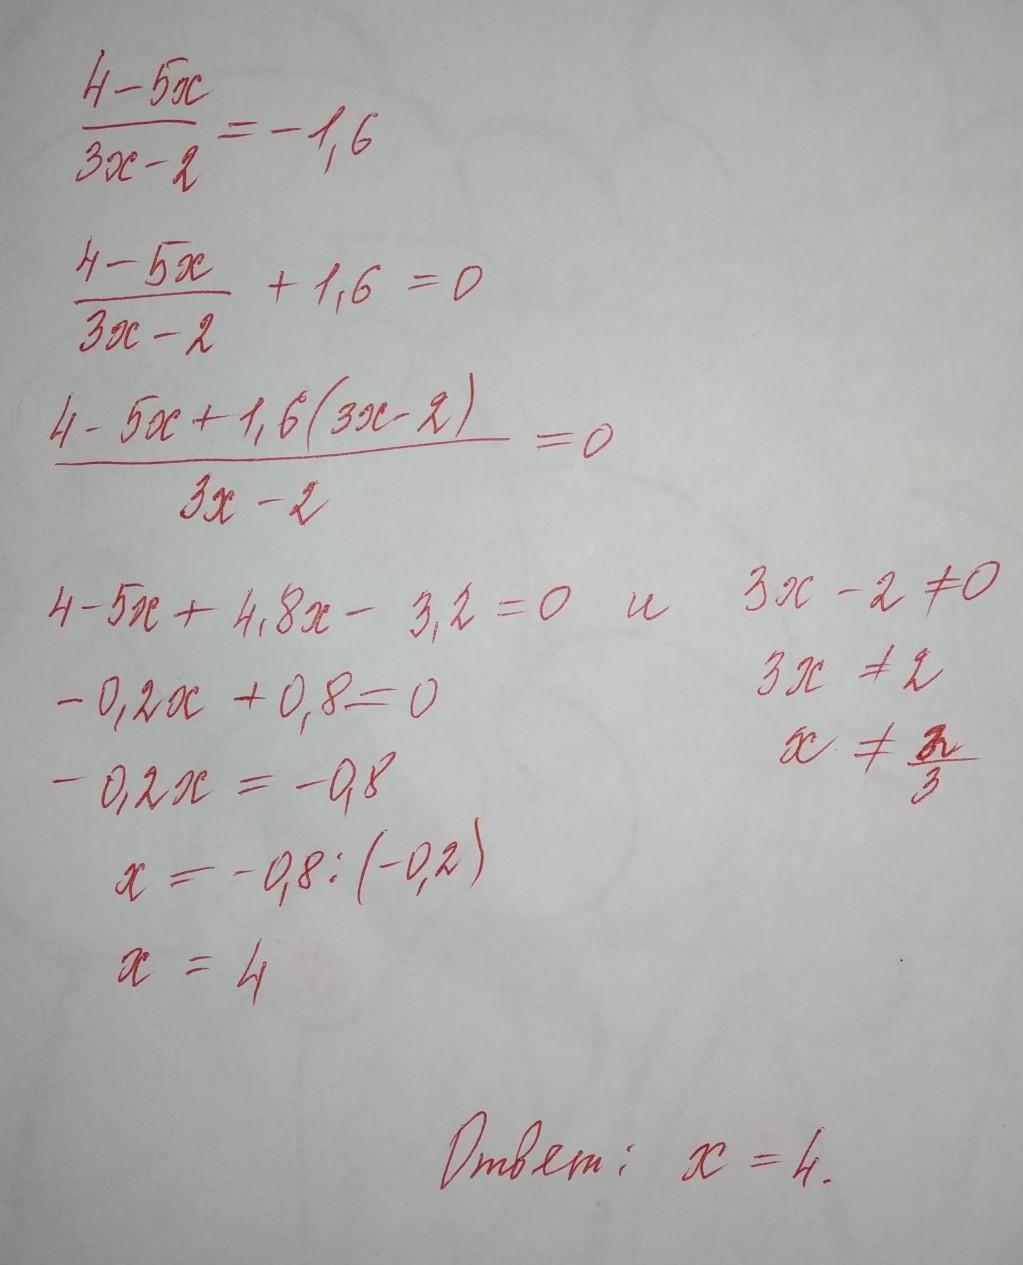 4-5x
3x-2 = -1,6
4-5x
3x-2 + 1,6 = 0
4-5x+1,6(3x-2)
3x-2 = 0
4-5x+4,8x-3,2=0 и 3x-2≠0
-0,2x+0,8=0 3x≠2
-0,2x=-0,8 x≠2/3
x=-0,8:(-0,2)
x=4
Ответ: x=4.